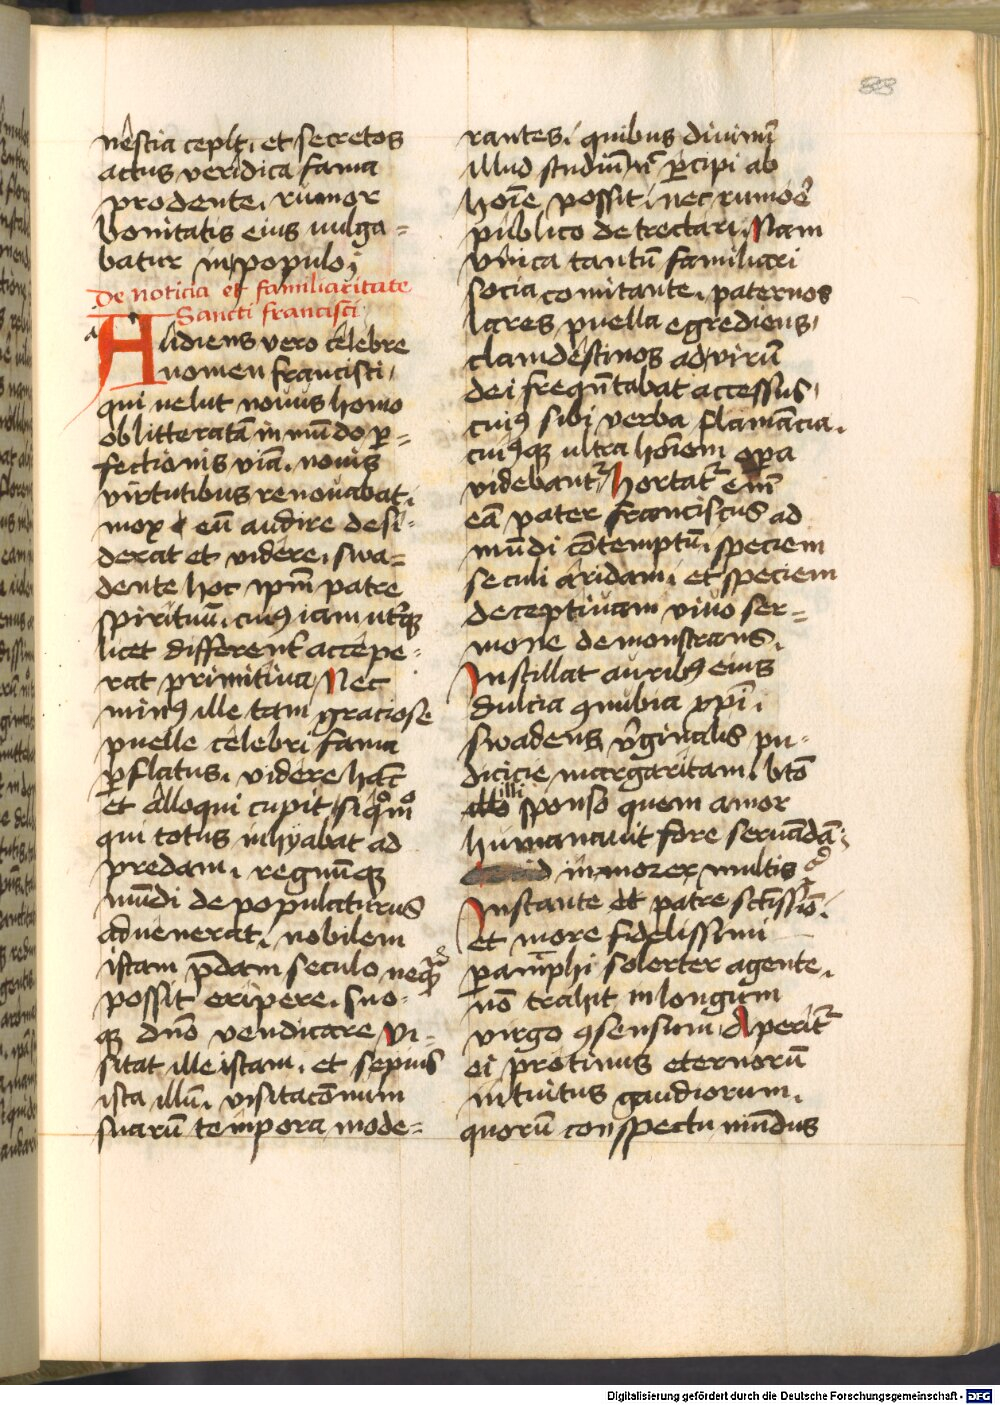 88
nescia ceplt, et secretos
actus veridica fama
prodente, rumor
bonitatis eius uulga=
batur in populo;
De noticia et familiaritate
Sancti francisci
a
Audiens vero celebre
nomen francisci,
qui uelut nouus homo
oblitteratā in mūdo ꝑ=
fectionis viā, nouis
virtutibus renouabat,
mox eū audire desi=
derat et videre, swa=
dente hoc ip̄m patre
spirituū, cuiꝰ iam utˀqꝫ
licet differentˀ accepe=
rat primitiua Nec
minꝰ ille tam graciose
puelle celebri fama
ꝑflatus, videre hāc
et alloqui cupit, si qͦmͦ
qui totus inhyabat ad
predam, regnūqꝫ
mūdi depopulaturus
aduenerat, nobilem
istam p̄dam seculo neqͣꝫ
possit eripere, suo=
qꝫ dn̄o vendicare Vi=
sitat ille istam, et sepius
ista illū, visitacōnum
suarū tempora mode=
rantes, quibus diuinū
illud studiū nˀ ꝑcipi ab
hoīe possit, nec rumoēˀ
publico detrectari, Nam
vnica tantū familiari
socia comitante, paternos
lares puella egrediens,
clamdestinos ad virū
dei freqn̄tabat accessus,
cuiꝰ sibi verba flamācia,
cuiꝰqꝫ ultra hoīem oꝑa
videbantˀ, Hortatˀ em̄
eā pater franciscus ad
mūdi cōtemptū, speciem
seculi aridam, et speciem
deceptiuam viuo ser=
mone demonstrans,
Instillat auribꝰ eius
dulcia ꝯnubia xp̄i,
swadens v̓ginalis pu=
dicicie margaritam, btō
illi
sponso quem amor
humanauit fore seruādā;
d in morex multis
Instante et patre sctīssiō,
et more fidelissimi
ꝑanīphi solerter agente,
nō trahit in longum
virgo ꝯsensum, Aperitˀ
ei protinus eternorū
intuitus gaudiorum,
quorū conspectu mūdus
Digitalisierung gefördert durch die Deutsche Forschungsgemeinschaft - DFG